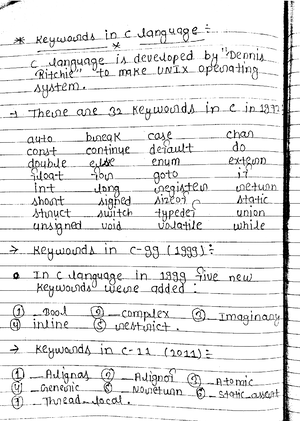 * Keywords in C language :-
C language is developed by "Dennis
Ritchie" to make UNIX operating
system.
→ There are 32 Keywords in C in 1977
auto break case char
const continue default do
double else enum extern
float for goto if
int long register return
short signed sizeof static
struct switch typedef union
unsigned void volatile while
→ Keywords in C-99 (1999) :-
• In C language in 1999 five new
Keywords were added :
① _Bool ② _complex ③ _Imaginary
④ inline ⑤ restrict.
→ Keywords in C-11 (2011) :-
① _Alignas ② _Alignof ③ _Atomic
④ _Generic ⑤ _Noreturn ⑥ _Static_assert
⑦ _Thread_local.